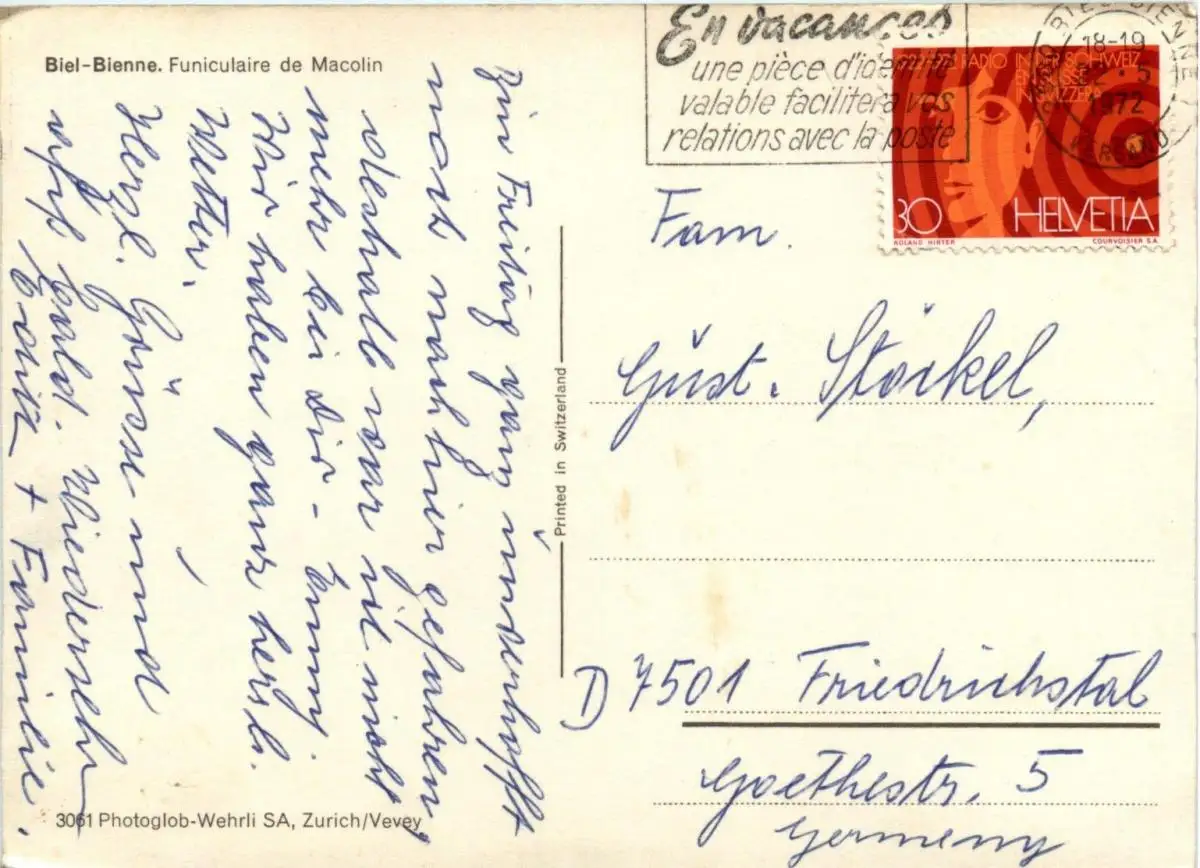 Biel-Bienne. Funiculaire de Macolin
Bin Freitag ganz unverhofft
noch nach hier gefahren,
deshalb war ich nicht
mehr bei Dir -
Wir haben ganz herrl.
Wetter.
Herzl. Grüsse und
aufs bald. Wiedersehn
Edith + Familie.
3061 Photoglob-Wehrli SA, Zurich/Vevey
Printed in Switzerland
En vacances
une pièce d'identité
valable facilitera vos
relations avec la poste
BIEL-BIENNE
18-19
1972
VERSAND
RADIO IN DER SCHWEIZ
EN SUISSE
IN SVIZZERA
30 HELVETIA
ROLAND HIRTER COURVOISIER S.A.
Fam.
Gust. Stöckel,
D 7501 Friedrichstal
Goethestr. 5
Germeny